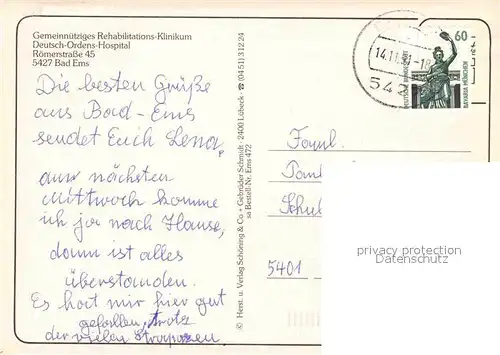 Gemeinnütziges Rehabilitations-Klinikum
Deutsch-Ordens-Hospital
Römerstraße 45
5427 Bad Ems
Die besten Grüße
aus Bad-Ems
sendet Euch Lena,
am nächsten
Mittwoch komme
ich ja nach Hause,
dann ist alles
überstanden.
Es hat mir hier gut
gefallen, trotz
der vielen Strapazen
© Herst. u. Verlag Schöning & Co · Gebrüder Schmidt · 2400 Lübeck · ☎ (04 51) 3 12 24
sa Bestell-Nr. Ems 472
14.11.
542
60
DEUTSCHE BUNDESPOST
BAVARIA MÜNCHEN
Faml.
Schul
5401
privacy protection
Datenschutz